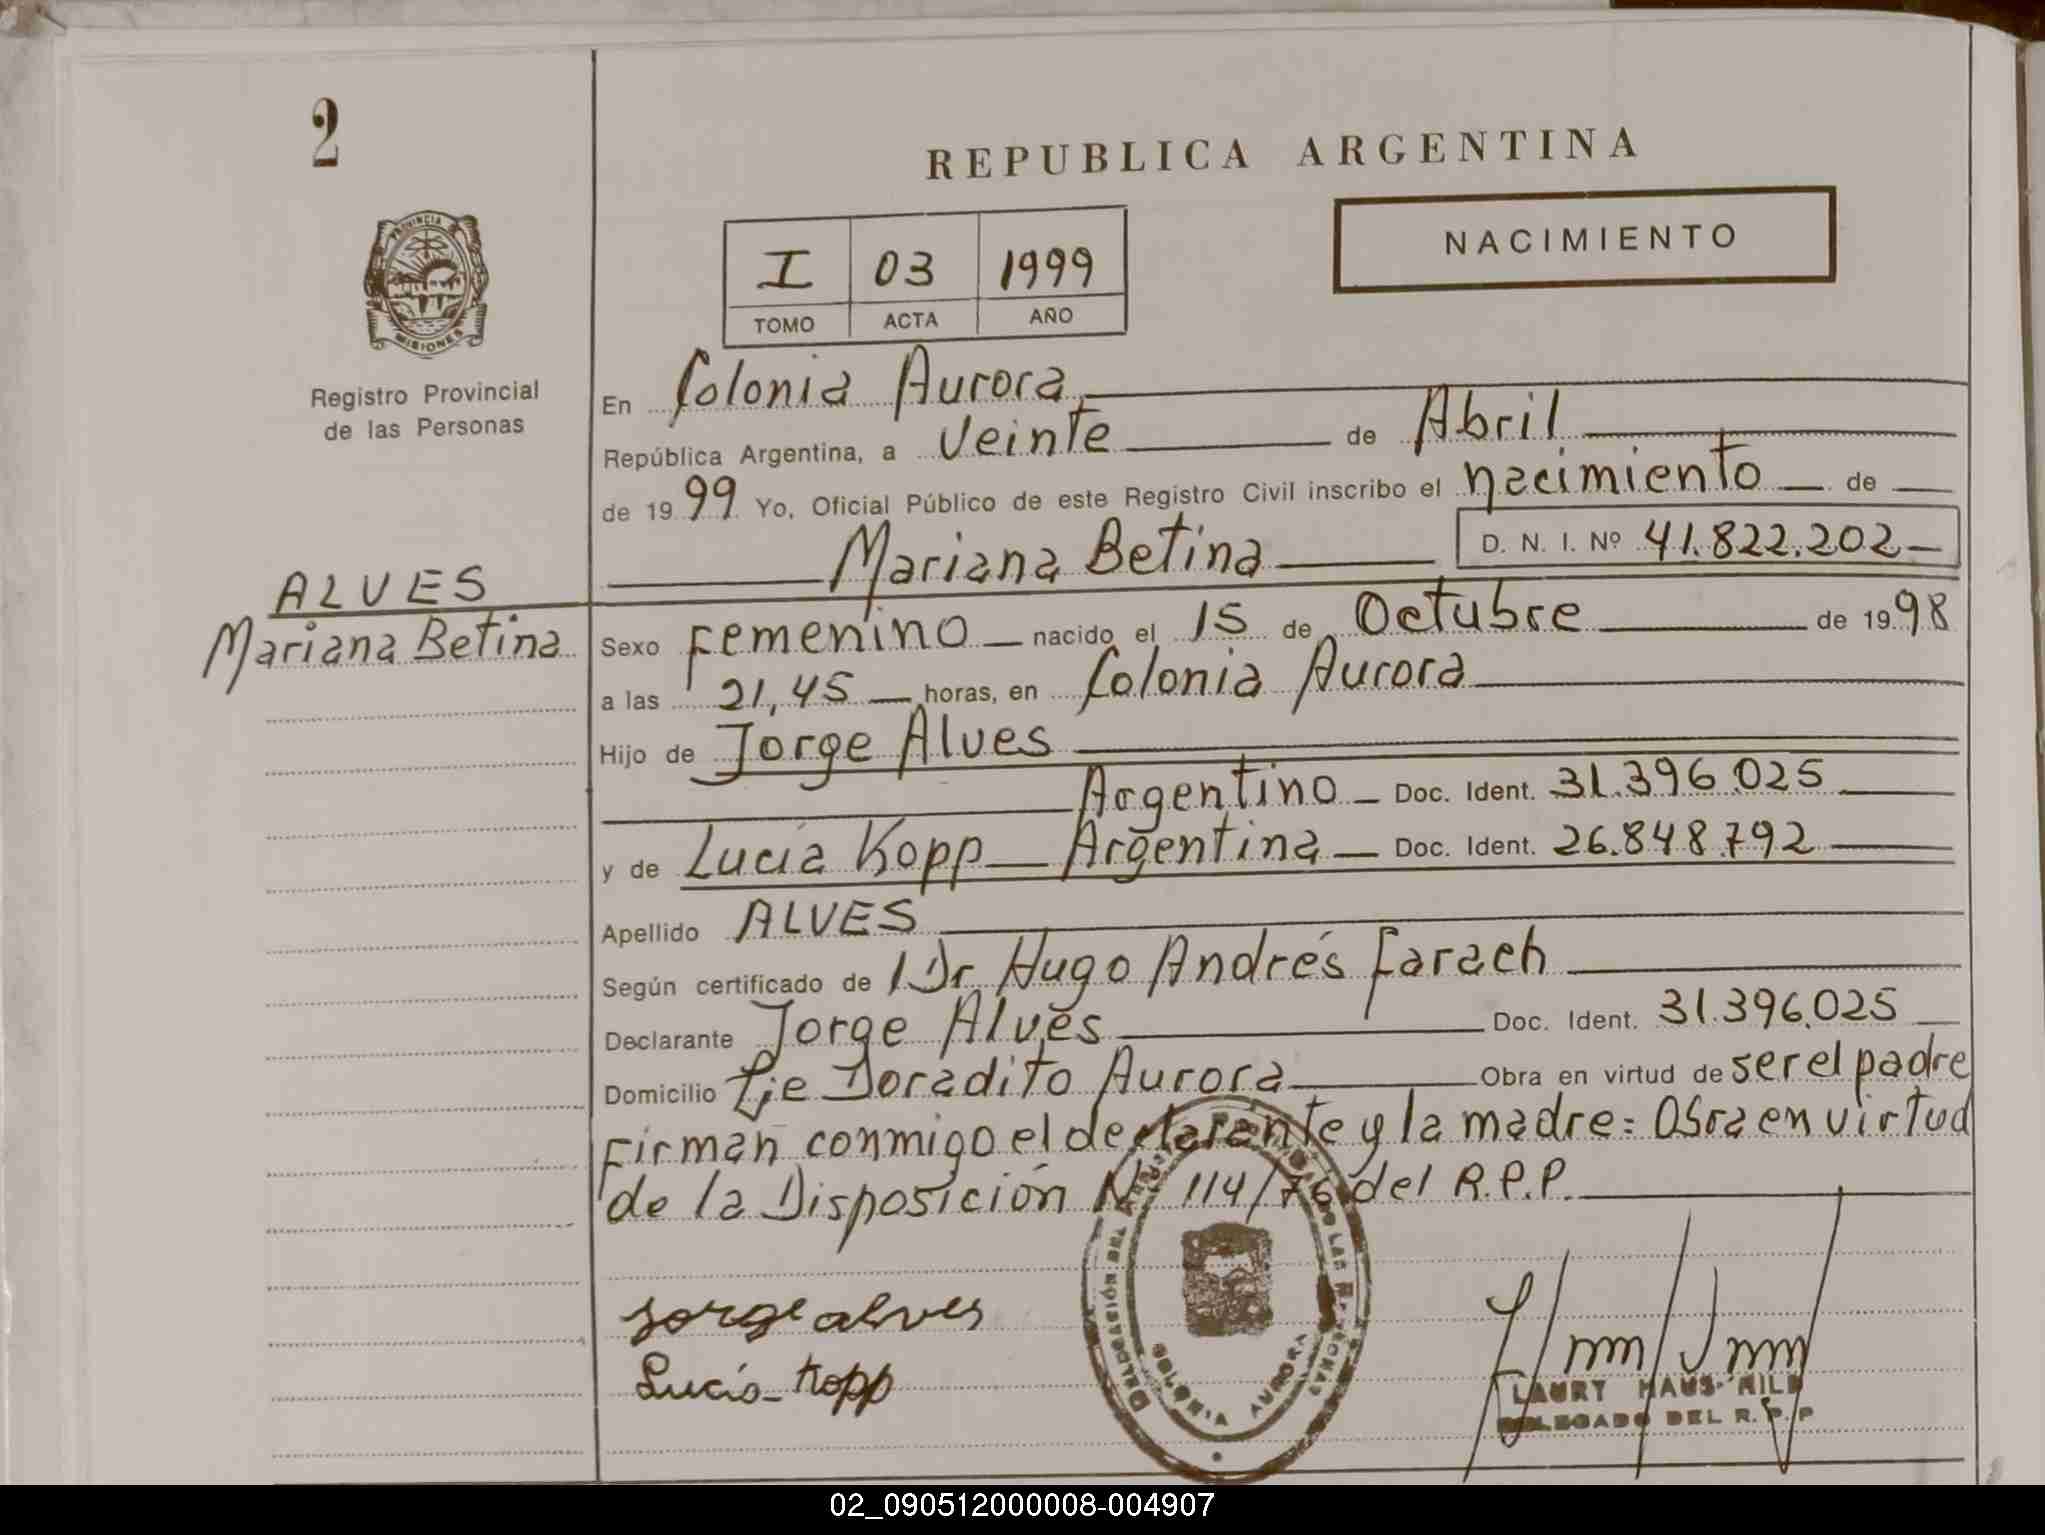 2
REPUBLICA ARGENTINA
PROVINCIA
MISIONES
Registro Provincial
de las Personas
I 03 1999
TOMO ACTA AÑO
NACIMIENTO
En Colonia Aurora
República Argentina, a Veinte de Abril
de 1999 Yo, Oficial Público de este Registro Civil inscribo el nacimiento de
Mariana Betina D. N. I. Nº 41.822.202
ALVES
Mariana Betina
Sexo Femenino nacido el 15 de Octubre de 1998
a las 21,45 horas, en Colonia Aurora
Hijo de Jorge Alves
Argentino Doc. Ident. 31.396.025
y de Lucía Kopp Argentina Doc. Ident. 26.848.792
Apellido ALVES
Según certificado de Dr Hugo Andrés Farach
Declarante Jorge Alves Doc. Ident. 31.396.025
Domicilio Pje Doradito Aurora Obra en virtud de ser el padre
Firman conmigo el declarante y la madre = Obra en virtud
de la Disposición Nº 114/76 del R.P.P.
Jorge alves
Lucía Kopp
COLONIA AURORA
LAURY
DELEGADO DEL R.P.P
02_090512000008-004907